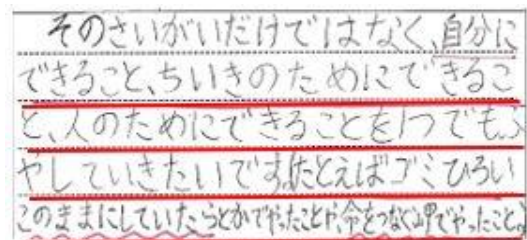 そのさいがいだけではなく、自分に
できること、ちいきのためにできるこ
と、人のためにできることを1つでもふ
やしていきたいです。たとえばゴミひろい
このままにしていたらとかでやったことや、命をつなぐ岬でやったこと、